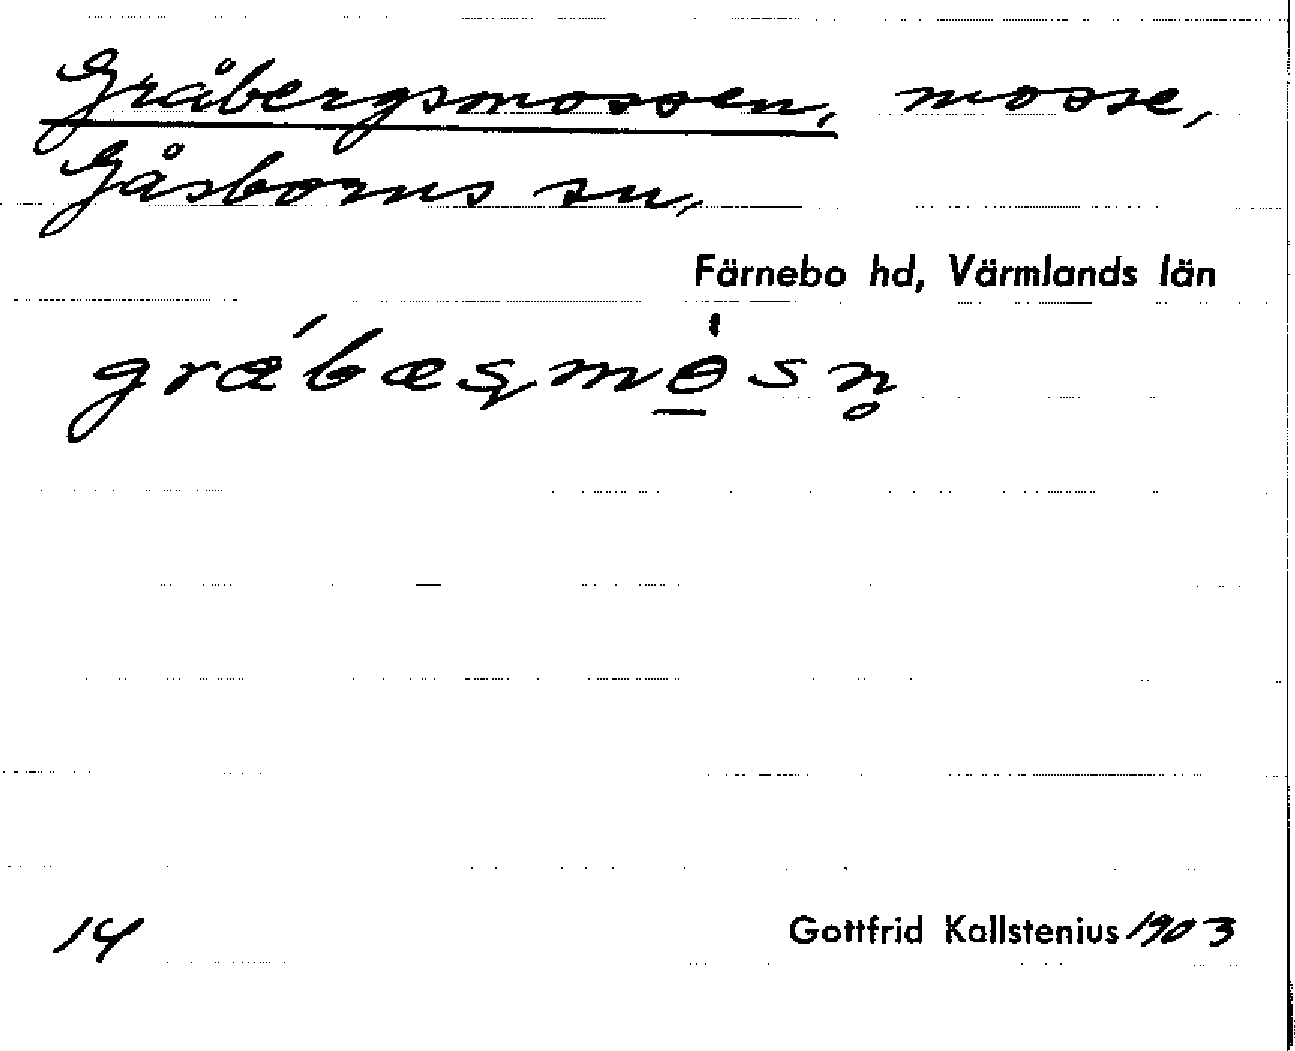 Gråbergsmossen, mosse,
Gåsborns sn,
Färnebo hd, Värmlands län
14
Gottfrid Kallstenius 1903